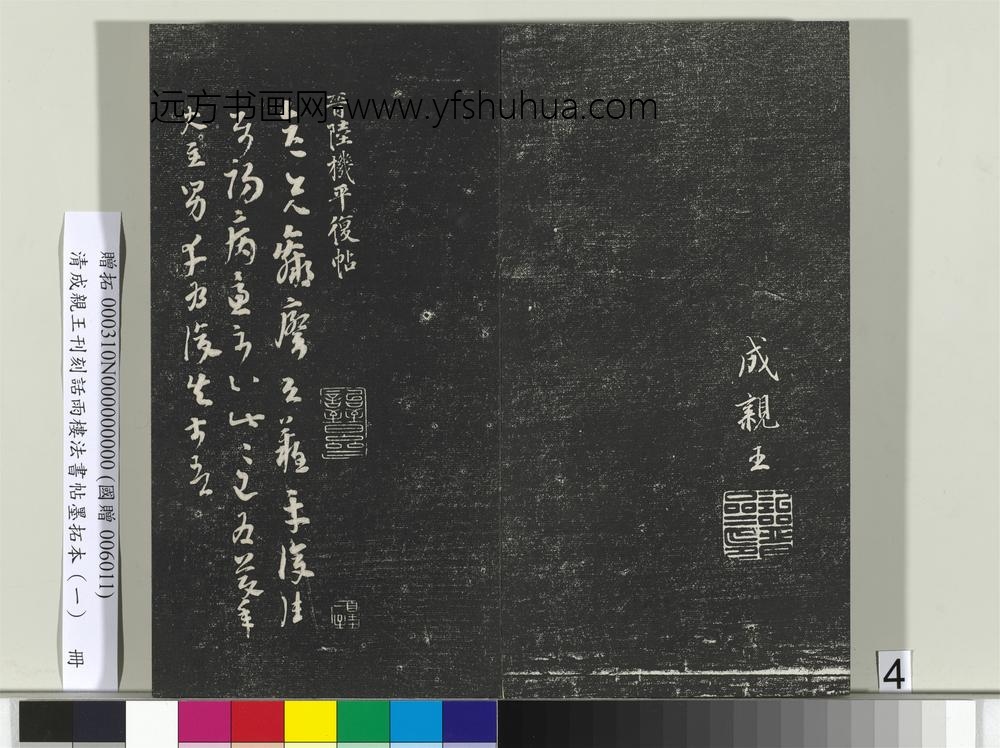 远方书画网-www.yfshuhua.com
成親王
晉陸機平復帖
彥先羸瘵恐難平復往
屬初病慮不止此〻已為慶承
使唯男幸為復失前憂
贈拓 000310N000000000 (國贈 006011)
清成親王刊刻話雨樓法書帖墨拓本(一) 冊
4